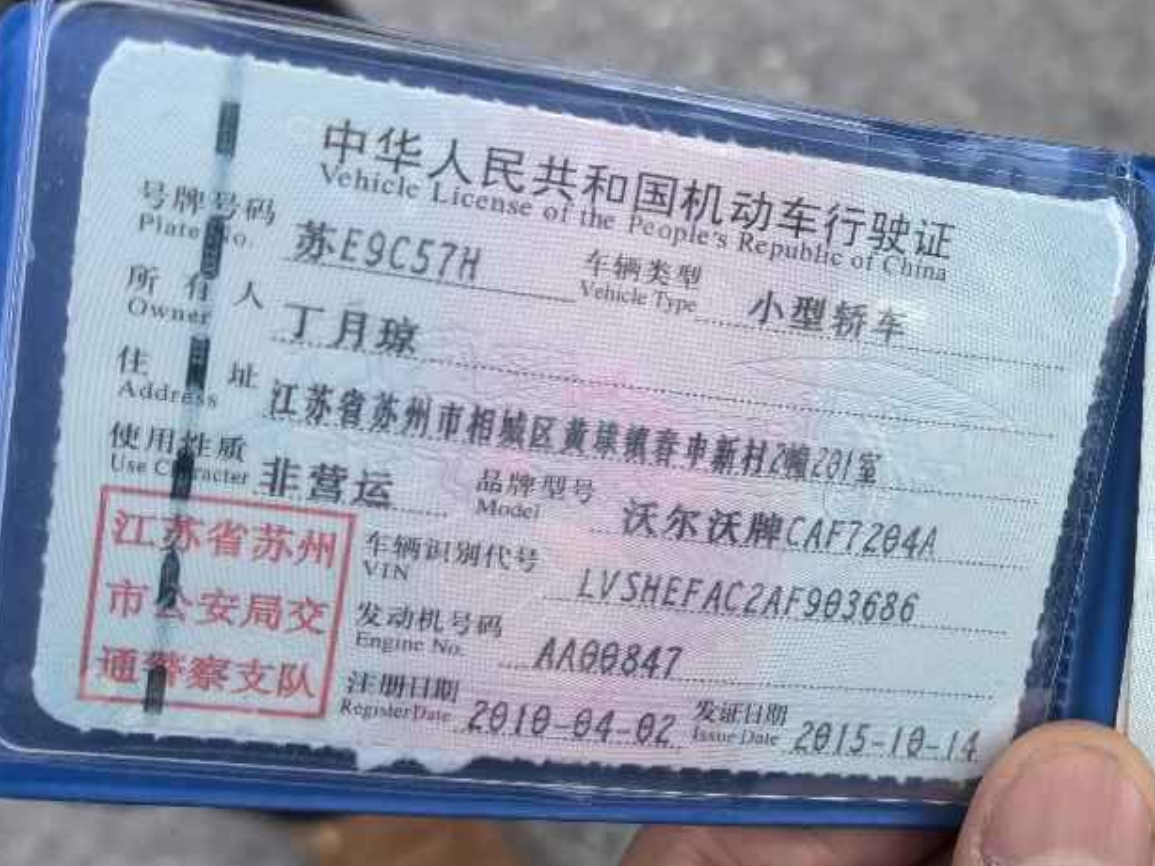 中华人民共和国机动车行驶证
Vehicle License of the People's Republic of China
号牌号码 苏E9C57H 车辆类型 小型轿车
Plate No. Vehicle Type
所有人 丁月琼
Owner
住址 江苏省苏州市相城区黄埭镇春申新村2幢201室
Address
使用性质 非营运 品牌型号 沃尔沃牌CAF7204A
Use Character Model
江苏省苏州
市公安局交
通警察支队
车辆识别代号 LVSHEFAC2AF903686
VIN
发动机号码 AA00847
Engine No.
注册日期 2010-04-02 发证日期 2015-10-14
Register Date Issue Date